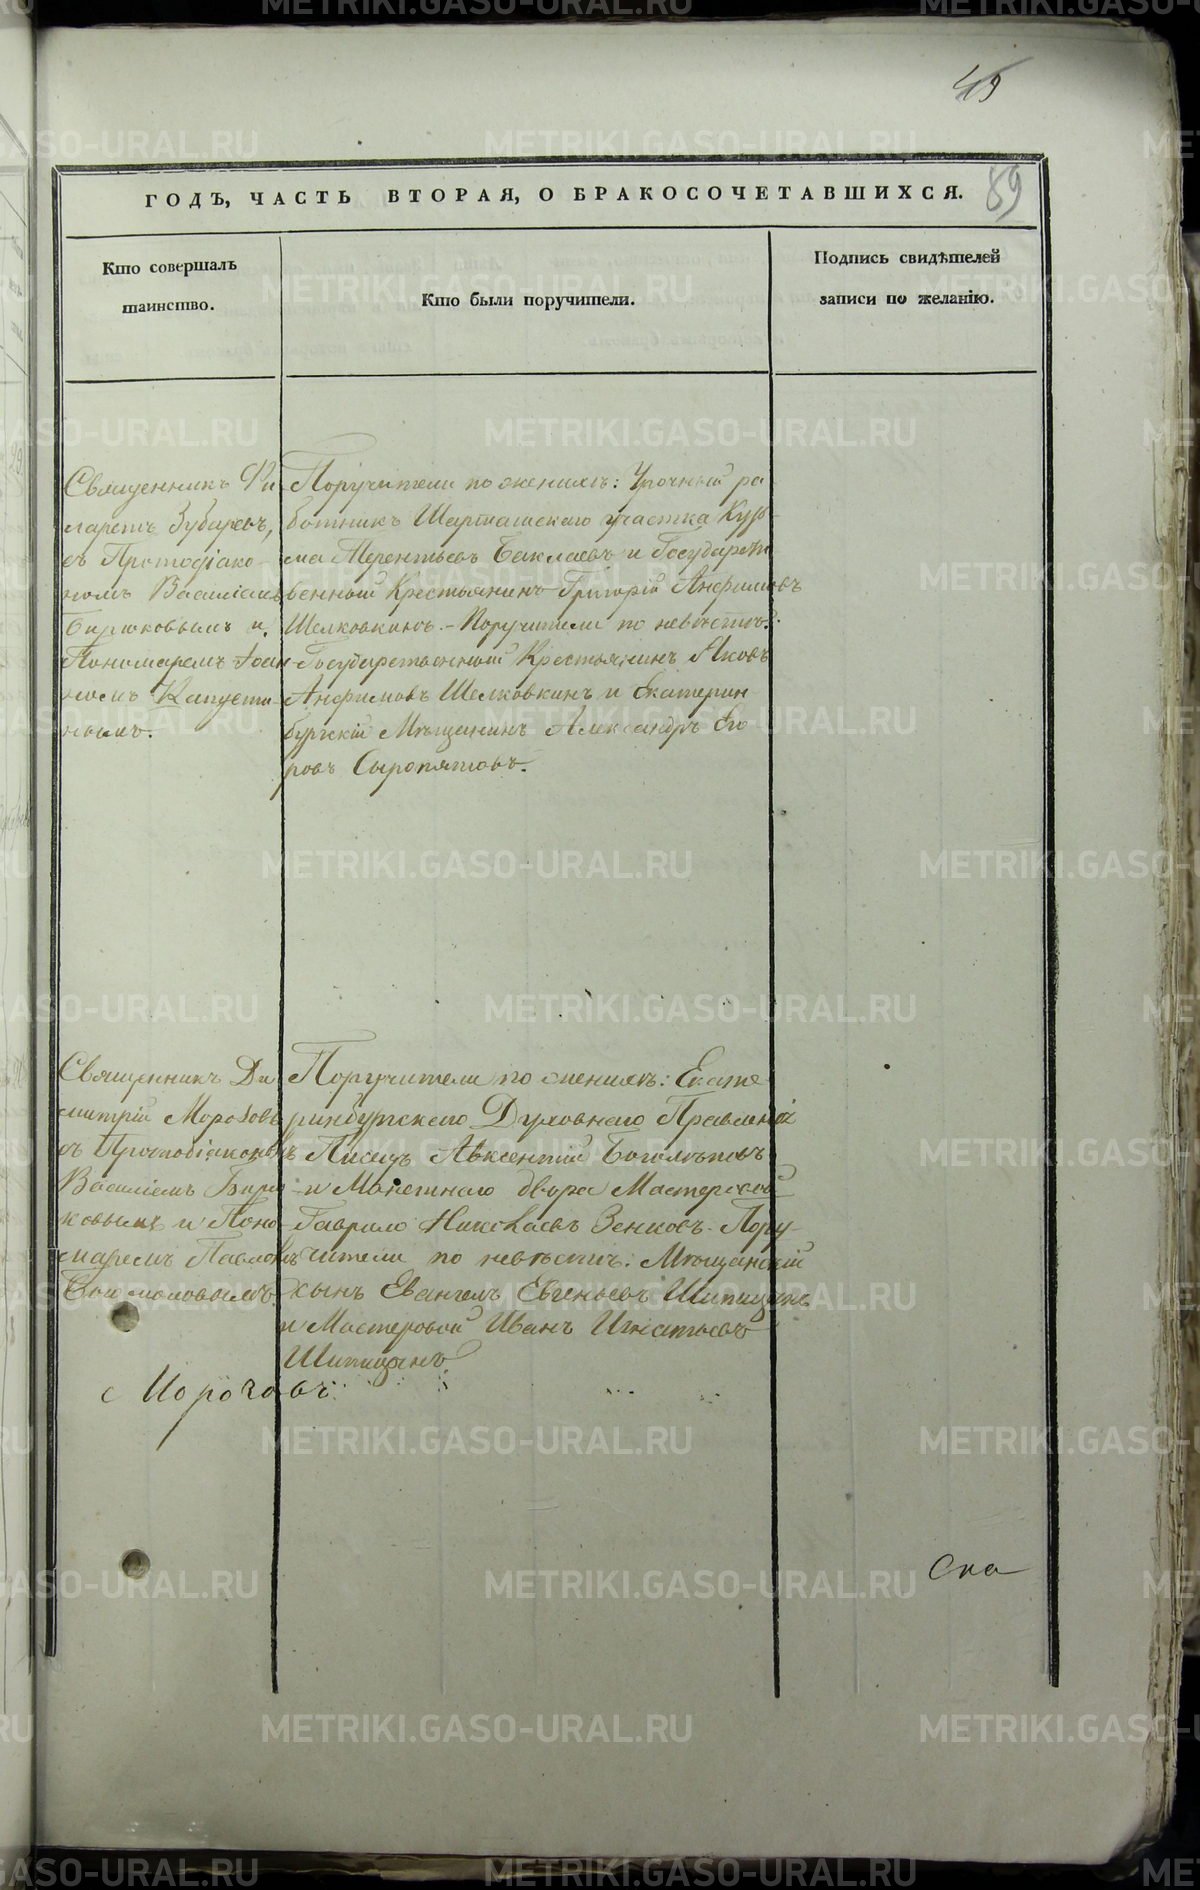 49
89
ГОДЪ, ЧАСТЬ ВТОРАЯ, О БРАКОСОЧЕТАВШИХСЯ.
Кто совершалъ
таинство.
Кто были поручители.
Подпись свидѣтелей
записи по желанію.
Священникъ Фи
ларетъ Зубаревъ,
съ Протодіако-
номъ Василіемъ
Бирюковымъ и
Пономаремъ Іоан
номъ Капусти-
нымъ.
Поручители по женихѣ: Урочный ра
ботникъ Шарташскаго участка Кузь-
ма Терентьевъ Баклаевъ и Государст
венный Крестьянинъ Григорій Анфимовъ
Шелковкинъ. - Поручители по невѣстѣ:
Государственный Крестьянинъ Яковъ
Анфимовъ Шелковкинъ и Екатерин-
бургскій Мѣщанинъ Александръ Его
ровъ Сыропятовъ.
Священникъ Ди
митрій Морозовъ
съ Протодіакономъ
Василіемъ Бирю-
ковымъ и Поно-
маремъ Павломъ
Богомоловымъ.
Поручители по женихѣ: Екате
ринбургскаго Духовнаго Правленія
Писецъ Авксентій Боголѣповъ
и Монетнаго двора Мастеровой
Гаврило Николаевъ Зенковъ. Пору-
чители по невѣстѣ: Мѣщанскій
сынъ Евангелъ Евгеньевъ Шипицынъ
и Мастеровой Иванъ Игнатьевъ
Шипицынъ.
Морозовъ
Ска
METRIKI.GASO-URAL.RU